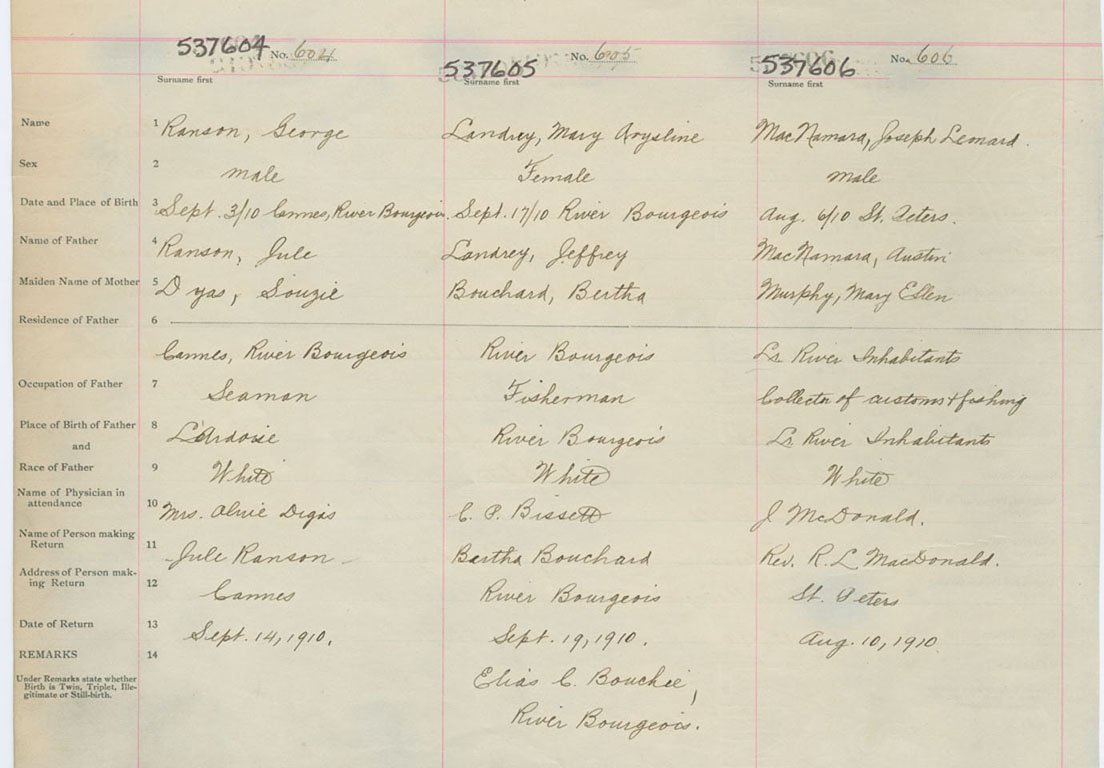 537604 No. 604 537605 No. 605 537606 No. 606
Surname first Surname first Surname first
Name 1 Ranson, George Landrey, Mary Arysline MacNamara, Joseph Leonard.
Sex 2 male Female male
Date and Place of Birth 3 Sept. 3/10 Cannes, River Bourgeois. Sept. 17/10 River Bourgeois Aug. 6/10 St. Peters.
Name of Father 4 Ranson, Jule Landrey, Jeffrey MacNamara, Austin
Maiden Name of Mother 5 Dyas, Souzie Bouchard, Bertha Murphy, Mary Ellen
Residence of Father 6
Cannes, River Bourgeois River Bourgeois Lr River Inhabitants
Occupation of Father 7 Seaman Fisherman Collector of customs + fishing
Place of Birth of Father 8 L'Ardoise River Bourgeois Lr River Inhabitants
and
Race of Father 9 White White White
Name of Physician in
attendance 10 Mrs. Olive Digas C. P. Bissett J McDonald.
Name of Person making
Return 11 Jule Ranson Bertha Bouchard Rev. R. L MacDonald.
Address of Person mak-
ing Return 12 Cannes River Bourgeois St. Peters
Date of Return 13 Sept. 14, 1910. Sept. 19, 1910. Aug. 10, 1910
REMARKS 14
Under Remarks state whether
Birth is Twin, Triplet, Ille-
gitimate or Still-birth.
Elias C. Bouchie,
River Bourgeois.